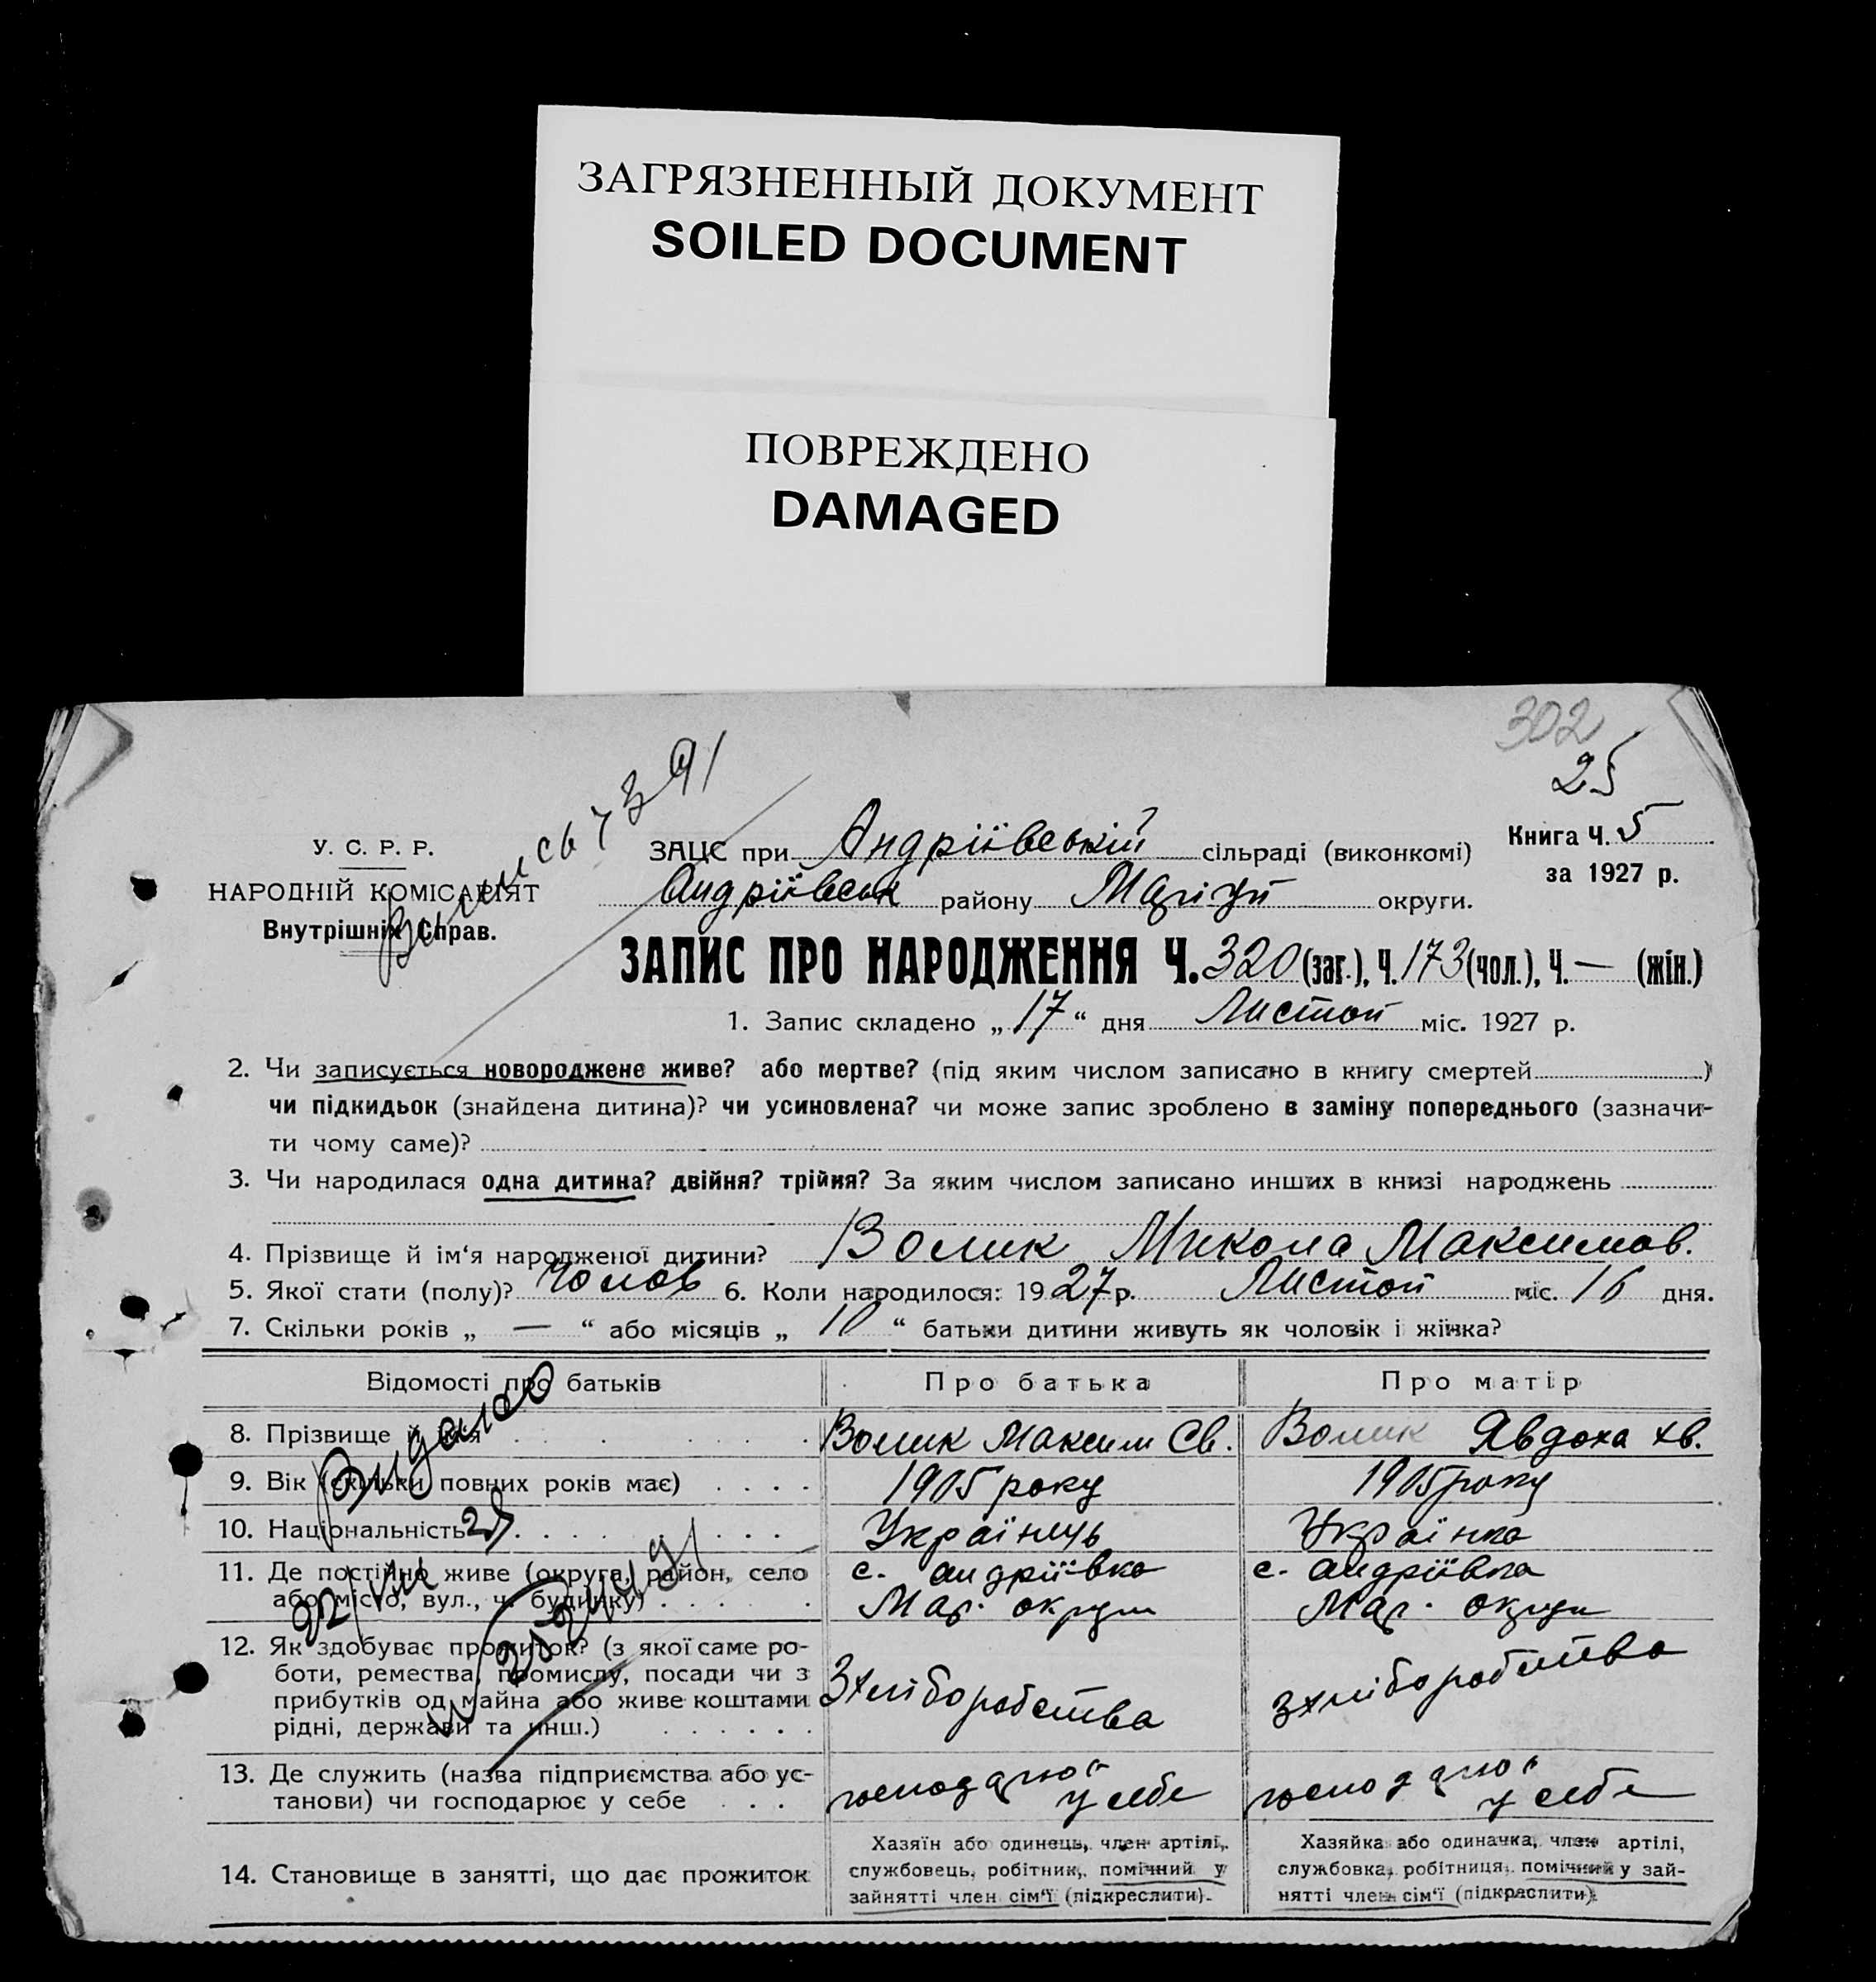 ЗАГРЯЗНЕННЫЙ ДОКУМЕНТ
SOILED DOCUMENT
ПОВРЕЖДЕНО
DAMAGED
302
25
Книга Ч. 5
за 1927 р.
У. С. Р. Р.
НАРОДНІЙ КОМІСАРІЯТ
Внутрішніх Справ.
ЗАЦС при Андріївській сільраді (виконкомі)
Андріївськ району Маріуп округи.
ЗАПИС ПРО НАРОДЖЕННЯ Ч. 320 (заг.), Ч. 173 (чол.), Ч. — (жін.)
1. Запис складено „17“ дня Листоп міс. 1927 р.
2. Чи записується новороджене живе? або мертве? (під яким числом записано в книгу смертей )
чи підкидьок (знайдена дитина)? чи усиновлена? чи може запис зроблено в заміну попереднього (зазначи-
ти чому саме)?
3. Чи народилася одна дитина? двійня? трійня? За яким числом записано инших в книзі народжень
4. Прізвище й ім‘я народженої дитини? Волик Микола Максимов.
5. Якої стати (полу)? Чолов 6. Коли народилося: 1927 р. Листоп міс. 16 дня.
7. Скільки років „ — “ або місяців „ 10 “ батьки дитини живуть як чоловік і жінка?
Відомості про батьків Про батька Про матір
8. Прізвище й ім‘я Волик Максим Св. Волик Явдоха Хв.
9. Вік (скільки повних років має) 1905 року 1905 року
10. Національність Українець Українка
11. Де постійно живе (округа, район, село
або місто, вул., ч. будинку) с. Андріївка Мар. округи с. Андріївка Мар. округи
12. Як здобуває прожиток? (з якої саме ро-
боти, ремества, промислу, посади чи з
прибутків од майна або живе коштами
рідні, держави та инш.) З хліборобства з хліборобства
13. Де служить (назва підприємства або ус-
танови) чи господарює у себе господарює у себе господарює у себе
14. Становище в занятті, що дає прожиток
Хазяїн або одинець, член артілі,
службовець, робітник, помічний у
зайнятті член сім‘ї (підкреслити).
Хазяйка або одиначка, член артілі,
службовка, робітниця, помічний у зай-
нятті член сім‘ї (підкреслити).